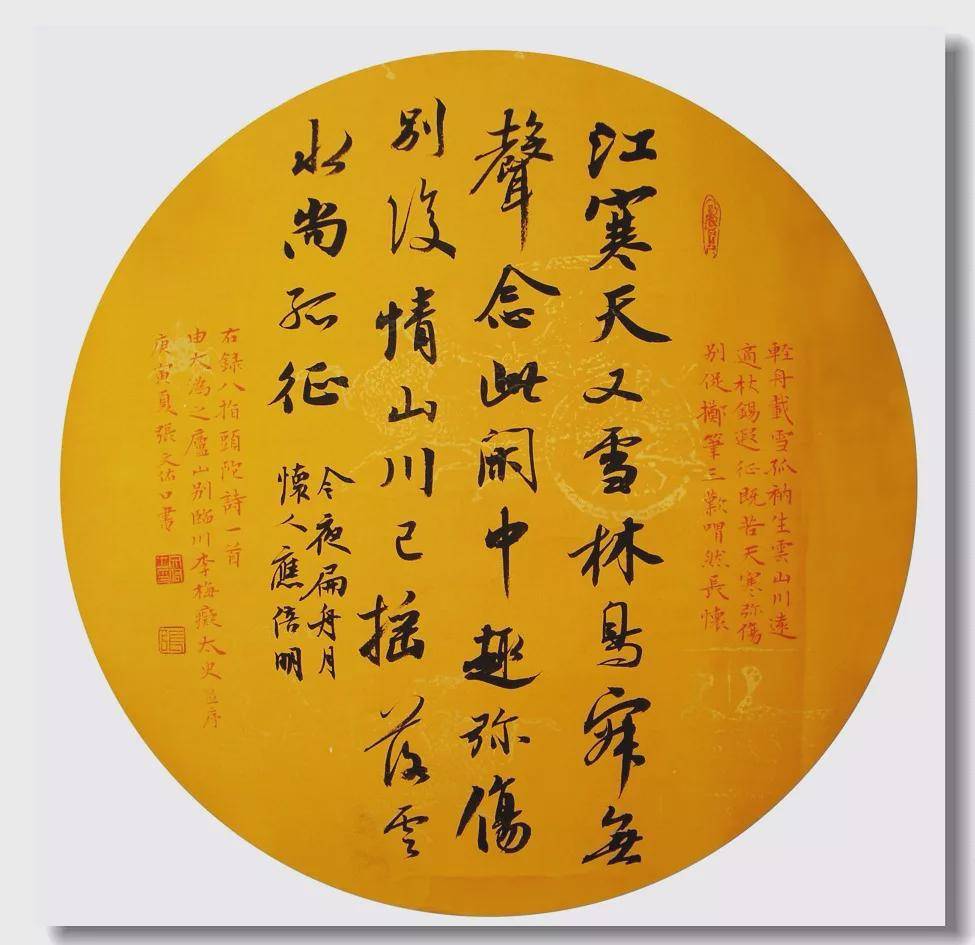 輕舟載雪孤衲生雲山川遠
適杖錫遐征既苦天寒弥傷
别促擲筆三歎喟然長懷
江寒天又雪林鳥寂無
聲念此閑中趣弥傷
别後情山川已摇落雲
水尚孤征
今夜扁舟月
懷人應倍明
右錄八指頭陀詩一首
由大溈之廬山别臨川李梅癡太史並序
庚寅夏張文佑口書
張